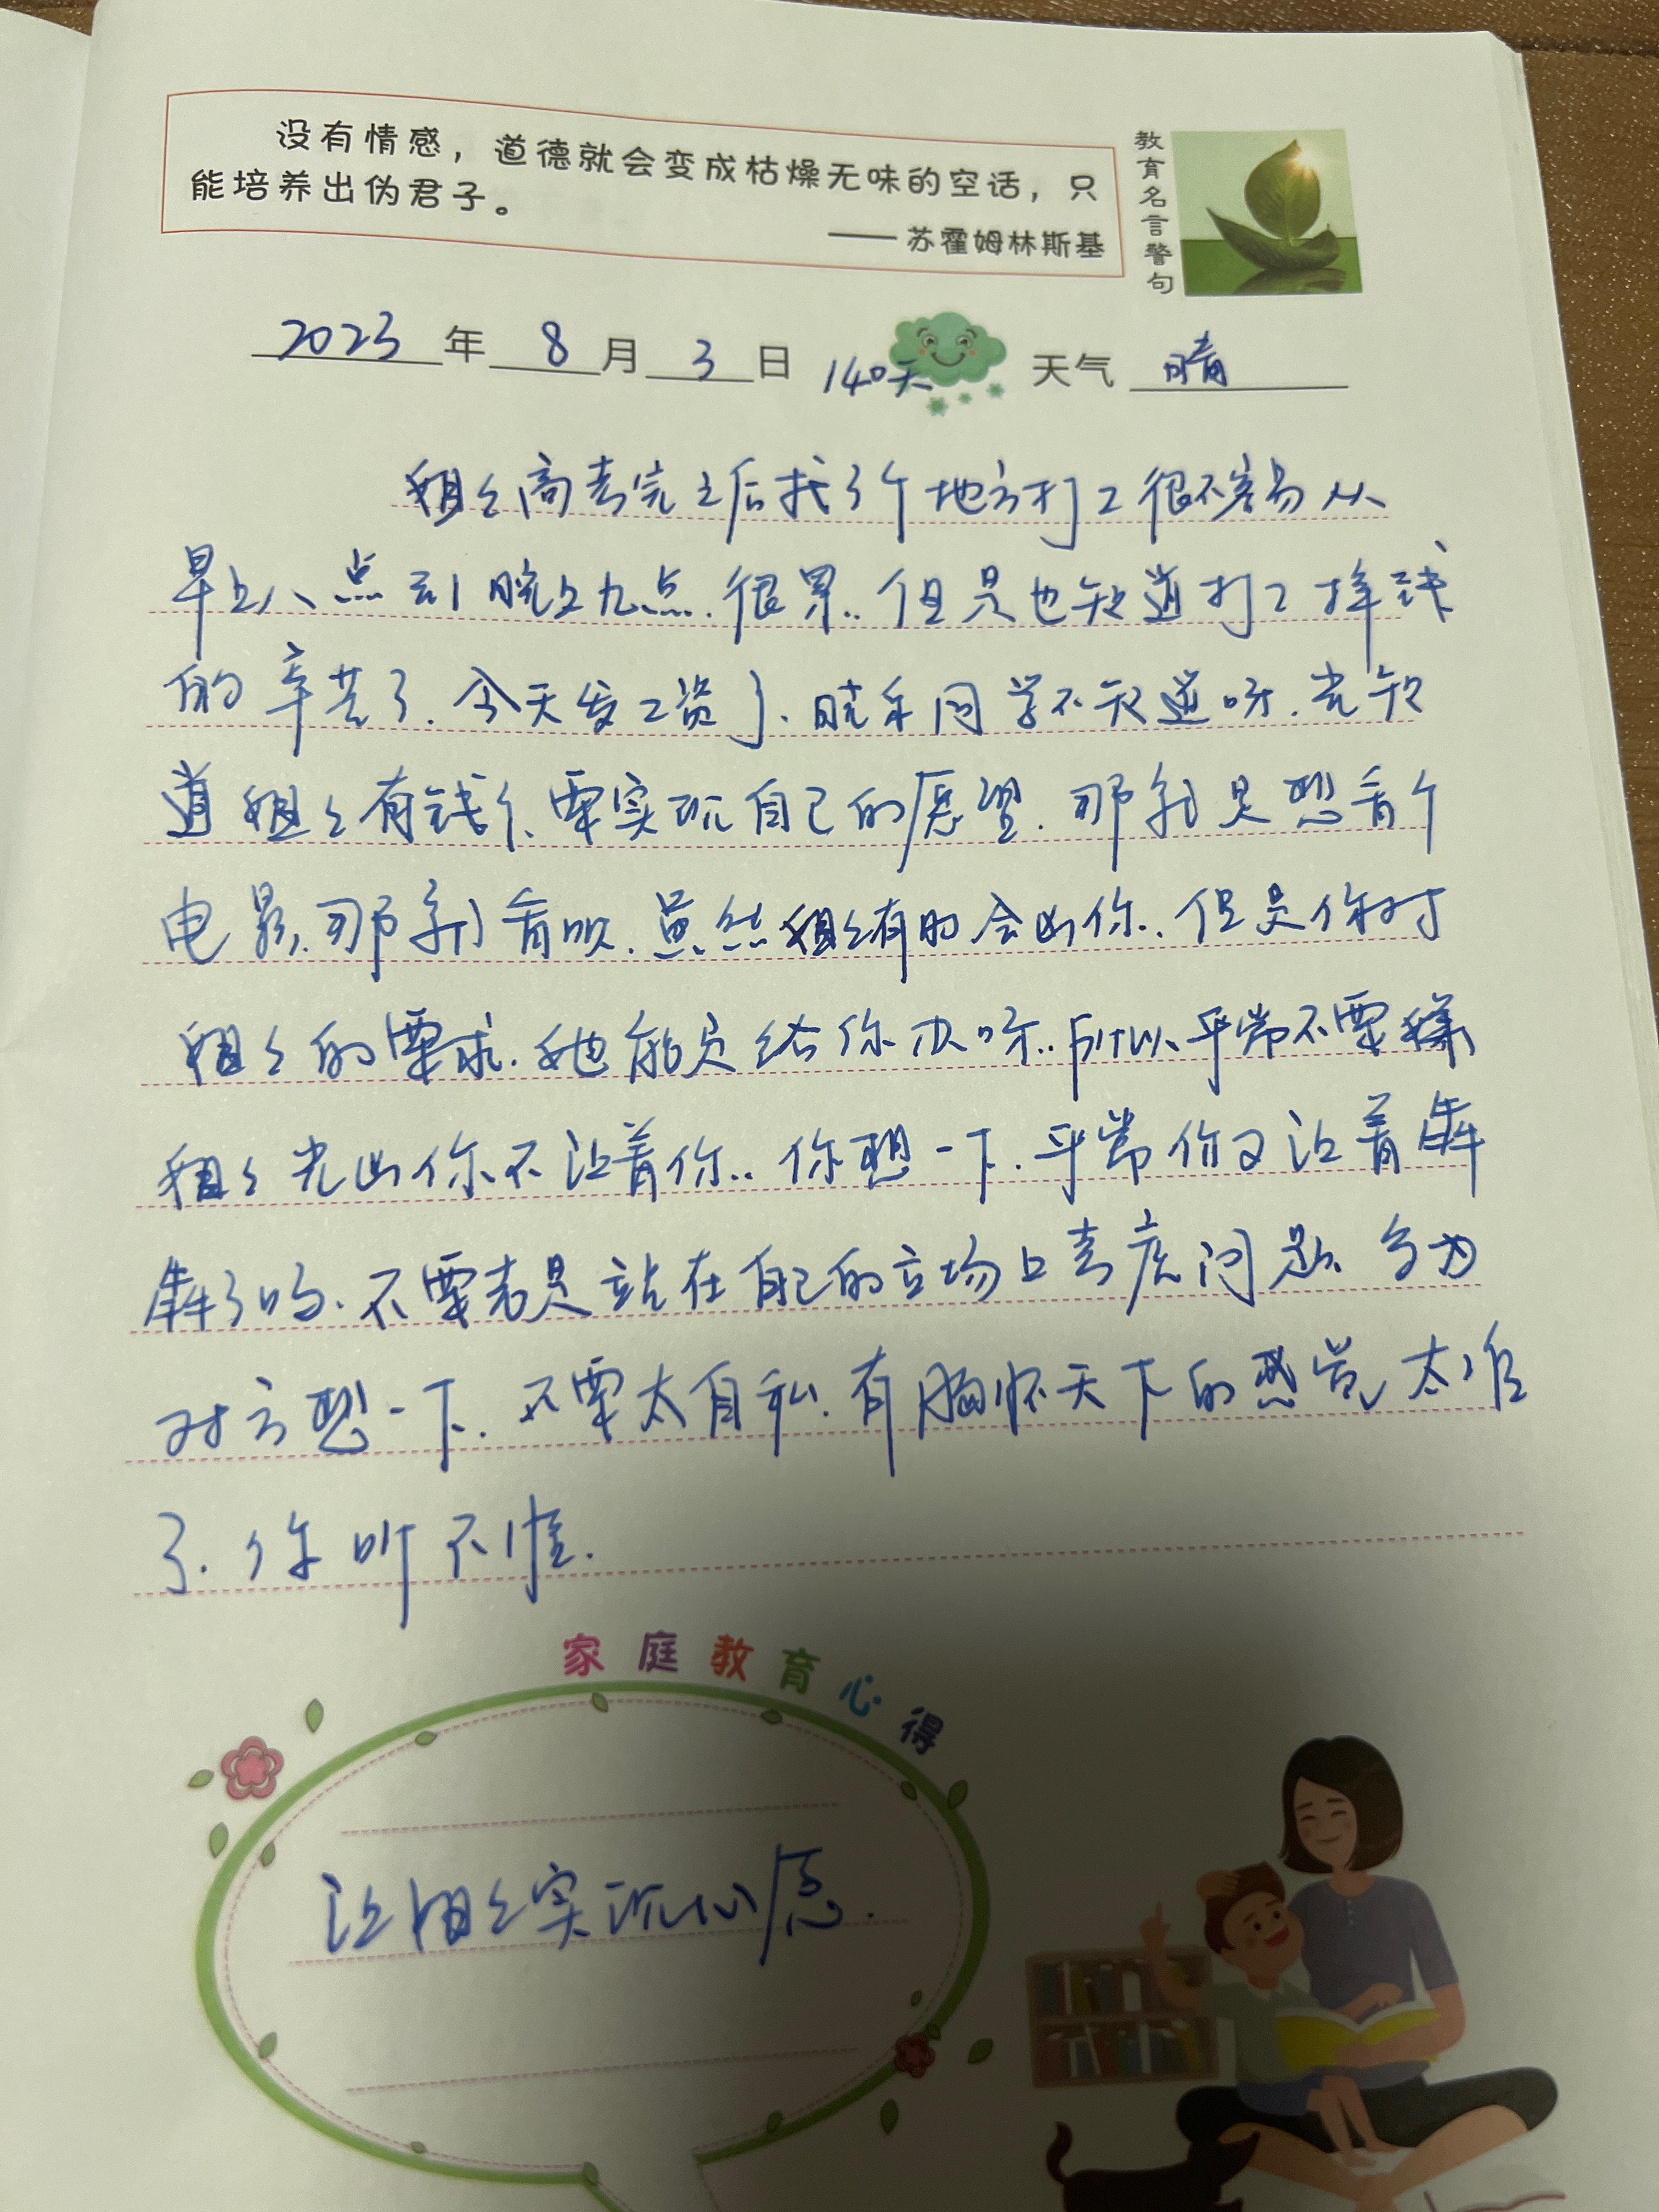 没有情感，道德就会变成枯燥无味的空话，只
能培养出伪君子。
——苏霍姆林斯基
教育名言警句
2023年 8月 3日 140天 天气 晴
姐姐高考完之后找了个地方打工很不容易从
早上八点到晚上九点.很累..但是也知道打工挣钱
的辛苦了.今天发工资了.同学不知道呀.光知
道姐姐有钱了、要实现自己的愿望.那就是想看个
电影.那就看呗.虽然姐姐有时会凶你..但是你对
姐姐的要求.她能给你办呀..所以平常不要嫌
姐姐光凶你不让着你..你想一下.平常你又让着
了吗.不要老是站在自己的立场上考虑问题、多为
对方想一下.不要太自私.有胸怀天下的感觉太难
了.你听不懂.
家庭教育心得
让姐姐实现心愿.